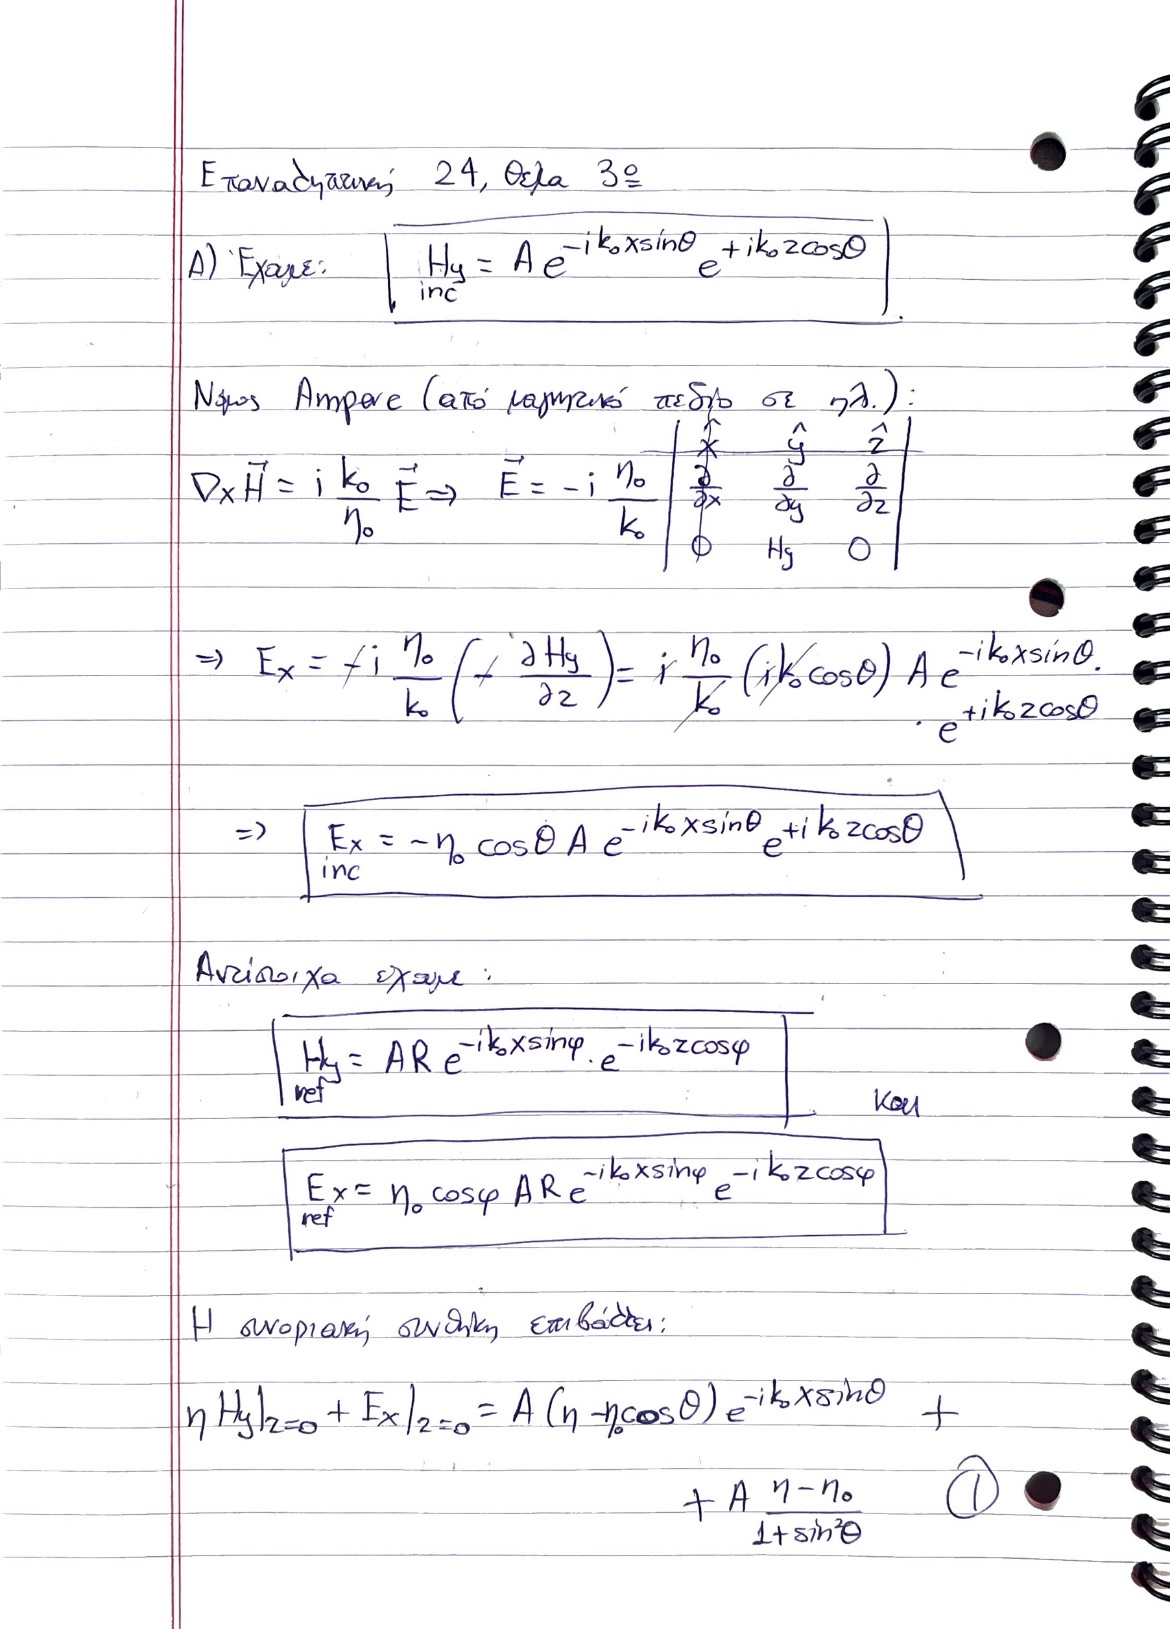 Επαναληπτική 24, θέμα 3º
A) Έχουμε: Hy inc = A e^{-ik₀xsinθ} e^{+ik₀zcosθ}
Νόμος Ampere (από μαγνητικό πεδίο σε ηλ.):
∇×H⃗ = i k₀/η₀ E⃗ ⇒ E⃗ = -i η₀/k₀ | x̂ ŷ ẑ ; ∂/∂x ∂/∂y ∂/∂z ; 0 Hy 0 |
⇒ Ex = -i η₀/k₀ (- ∂Hy/∂z) = i η₀/k₀ (ik₀cosθ) A e^{-ik₀xsinθ} ·
· e^{+ik₀zcosθ}
⇒ Ex inc = -η₀ cosθ A e^{-ik₀xsinθ} e^{+ik₀zcosθ}
Αντίστοιχα έχουμε:
Hy ref = AR e^{-ik₀xsinφ} · e^{-ik₀zcosφ}
και
Ex ref = η₀ cosφ AR e^{-ik₀xsinφ} e^{-ik₀zcosφ}
Η συνοριακή συνθήκη επιβάλλει:
η Hy|z=0 + Ex|z=0 = A (η-η₀cosθ) e^{-ik₀xsinθ} +
+ A (η-η₀)/(1+sin²θ) ①